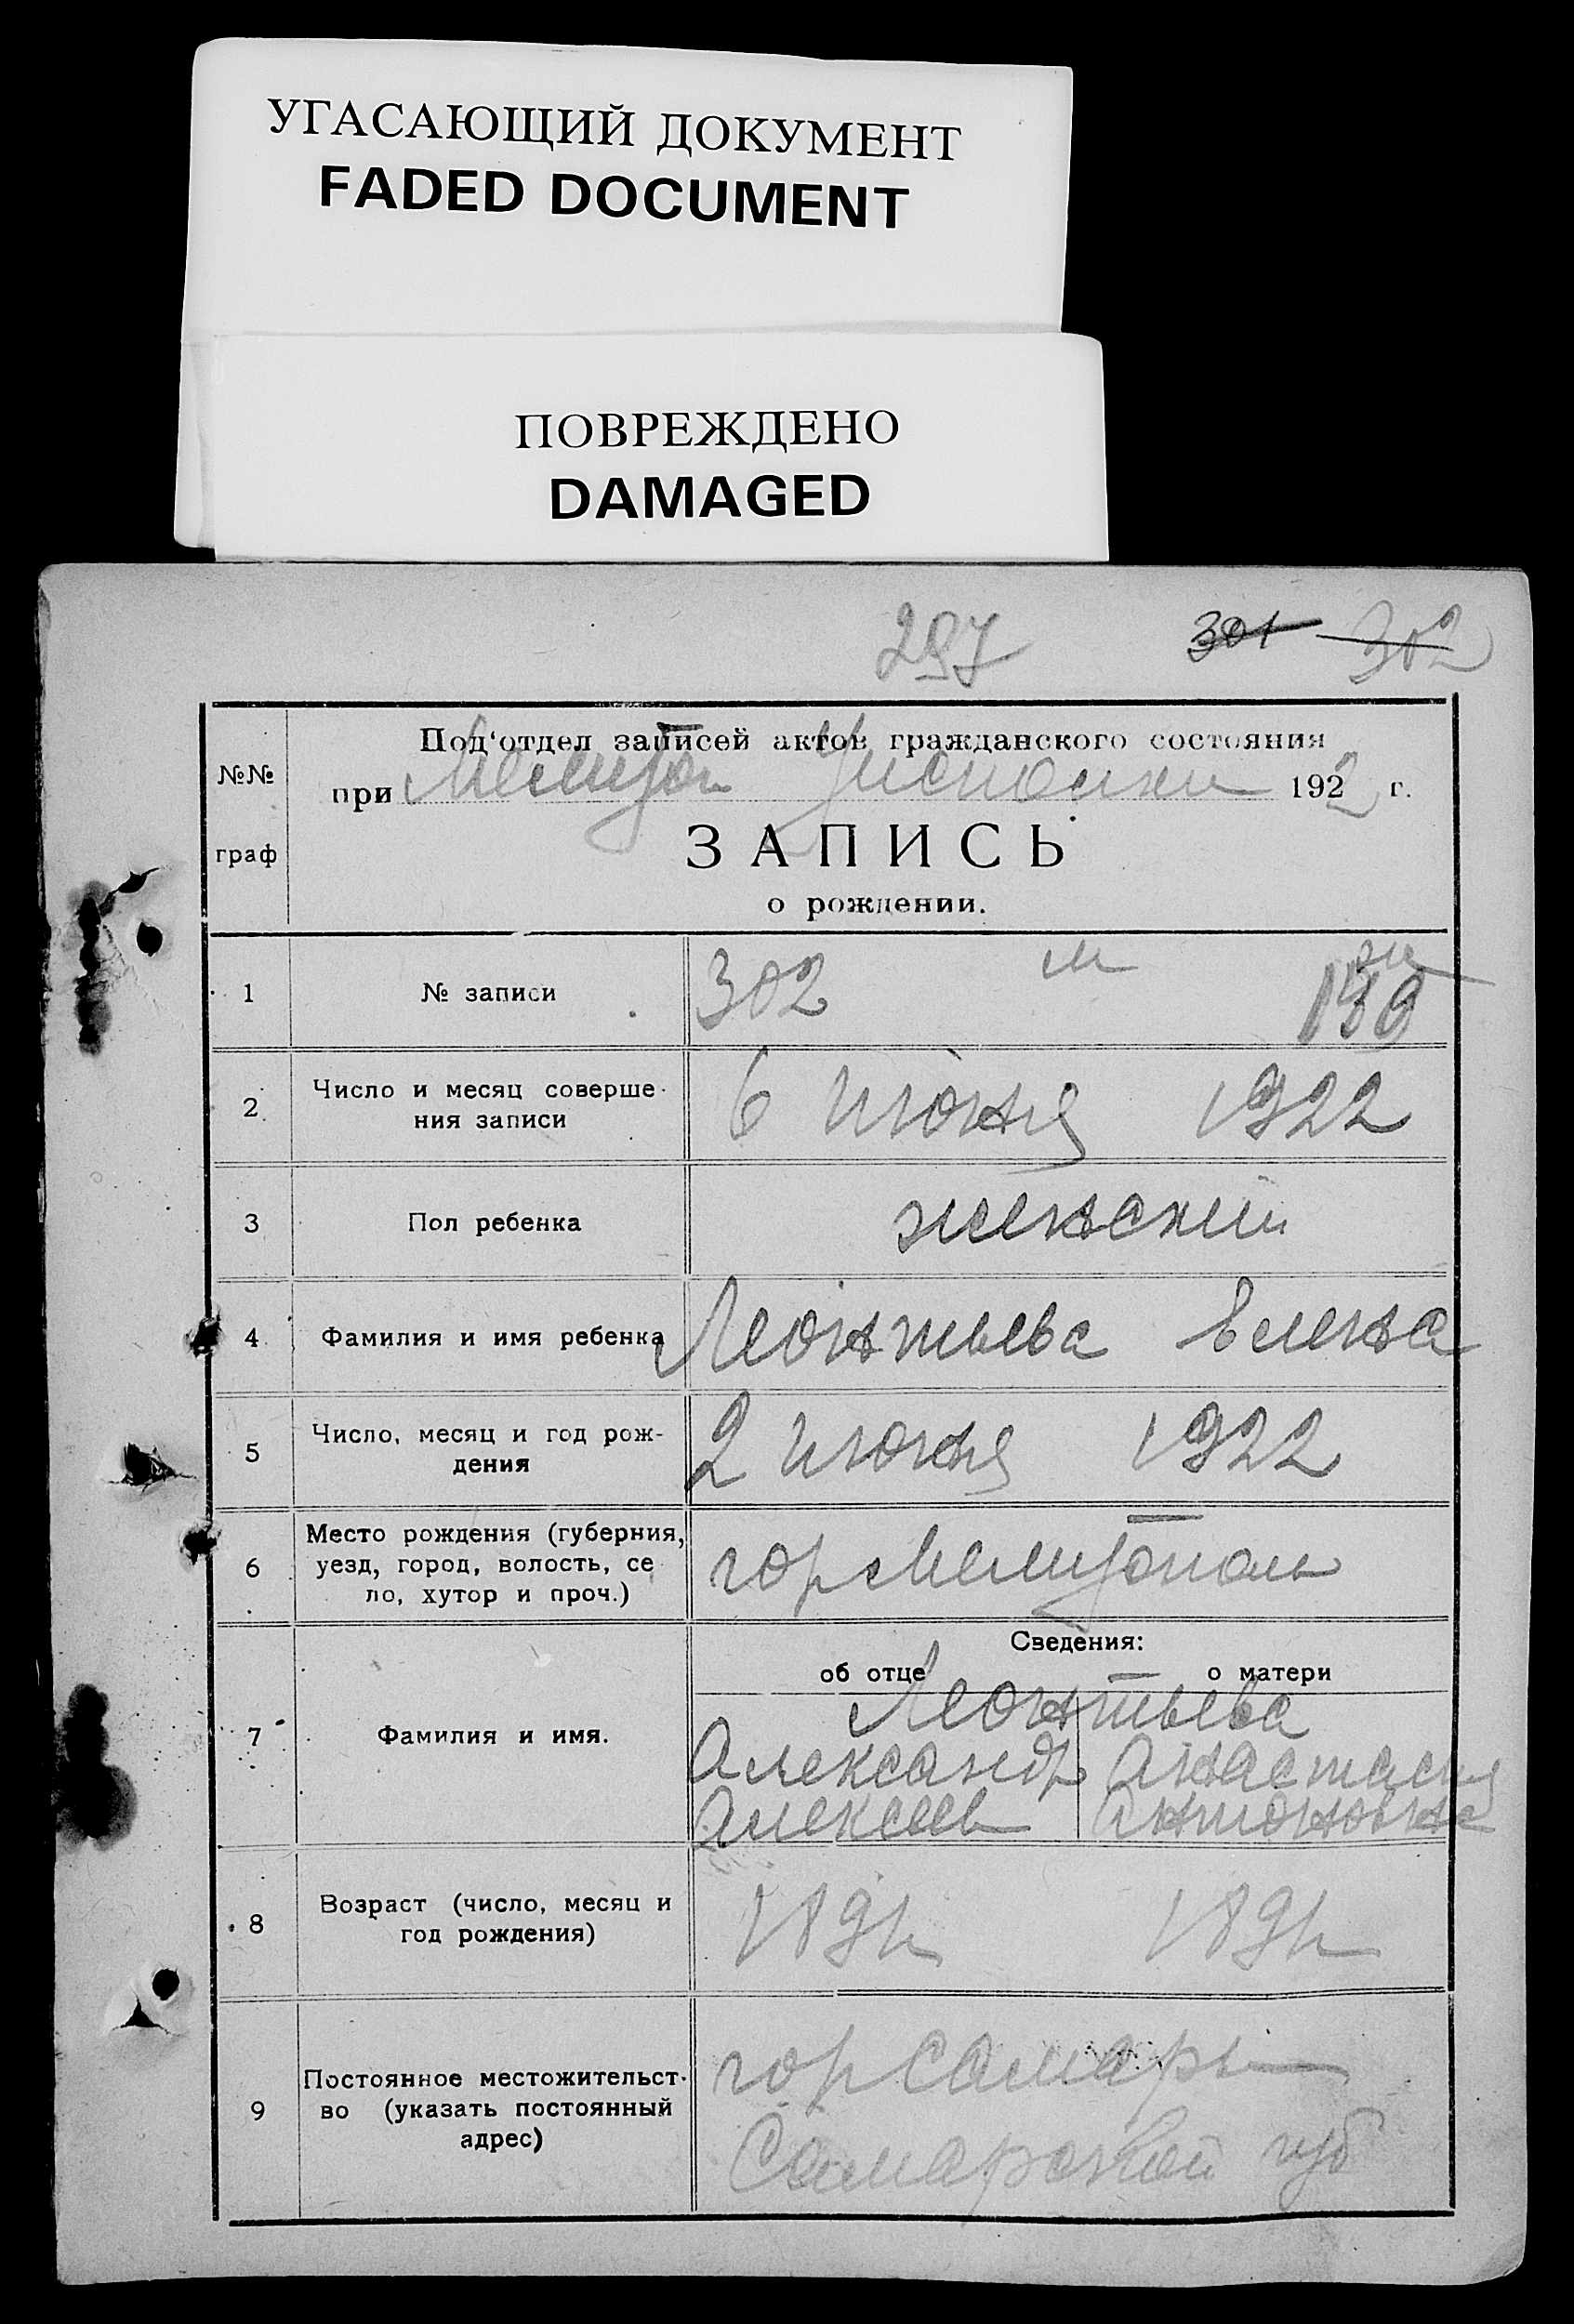 УГАСАЮЩИЙ ДОКУМЕНТ
FADED DOCUMENT
ПОВРЕЖДЕНО
DAMAGED
297 301 302
№№
граф
Под'отдел записей актов гражданского состояния
при Мелитоп 1922 г.
ЗАПИСЬ
о рождении.
1 № записи 302 м ж
2 Число и месяц соверше-
ния записи
6 июня 1922
3 Пол ребенка женский
4 Фамилия и имя ребенка Леонтьева Елена
5 Число, месяц и год рож-
дения
2 июня 1922
6 Место рождения (губерния,
уезд, город, волость, се
ло, хутор и проч.)
гор Мелитополь
Сведения:
об отце о матери
7 Фамилия и имя.
Леонтьева
Александр Анастасия
Алексеев Антоновна
8 Возраст (число, месяц и
год рождения)
189 189
9 Постоянное местожительст-
во (указать постоянный
адрес)
гор Самары
Самарской губ